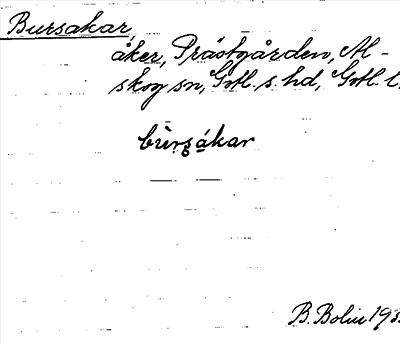 Bursakar,
åker, Prästgården, Al-
skog sn, Gotl. s. hd, Gotl. l.
bùrsákar
B. Bolin 193